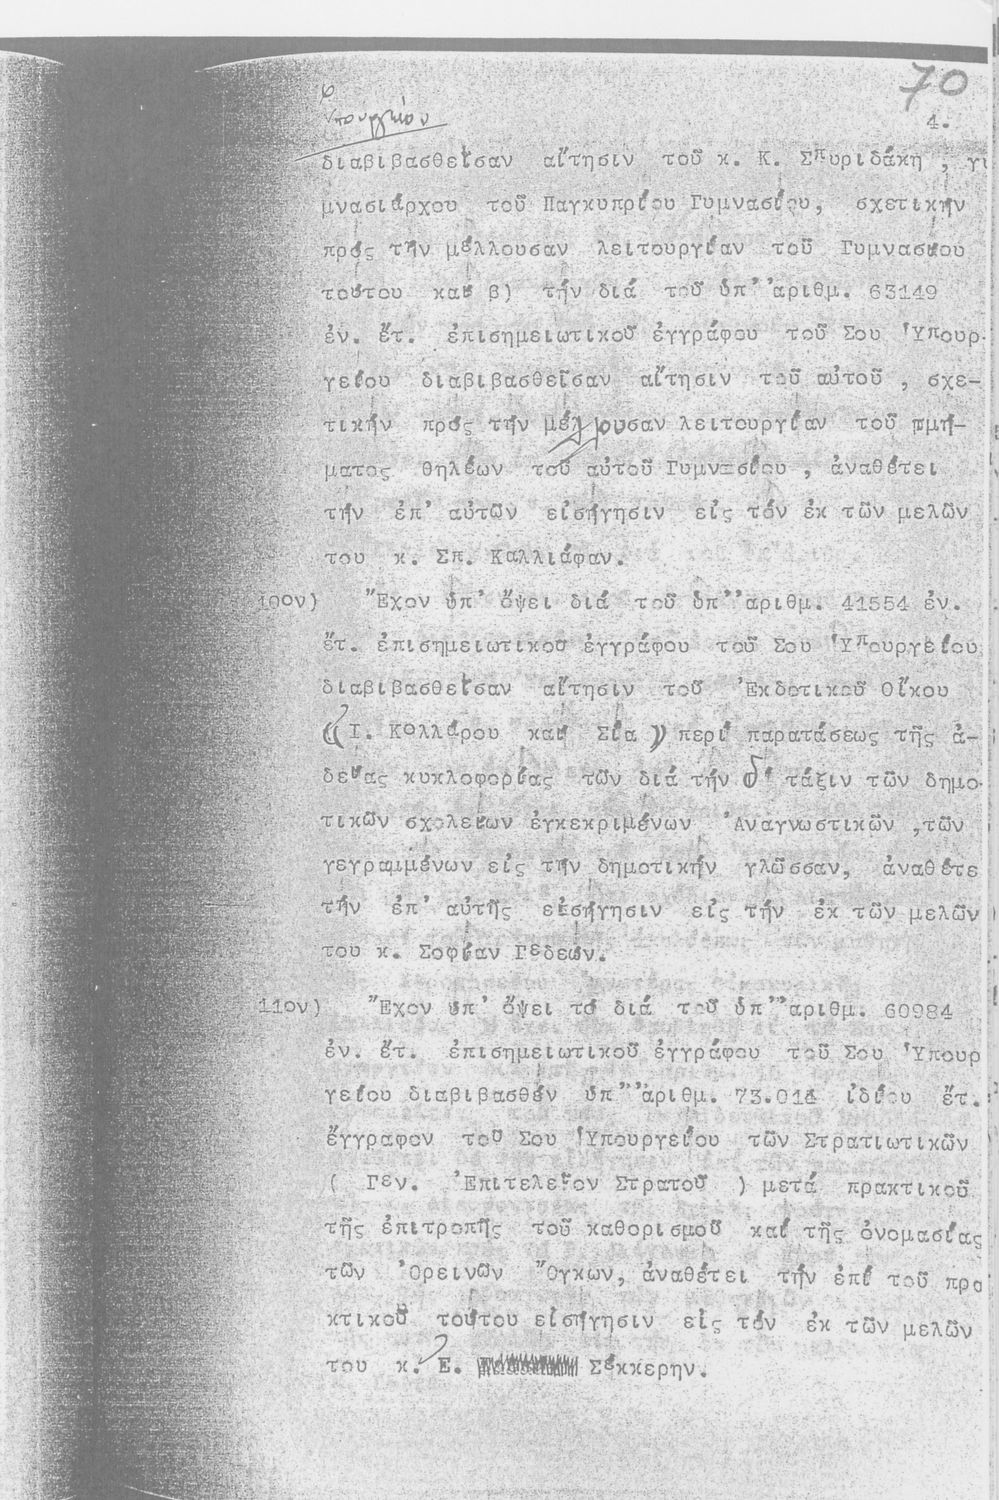 70
4.
Ὑπουργείου
διαβιβασθεῖσαν αἴτησιν τοῦ κ. Κ. Σπυριδάκη , γυ
μνασιάρχου τοῦ Παγκυπρίου Γυμνασίου, σχετικήν
πρός τήν μέλλουσαν λειτουργίαν τοῦ Γυμνασίου
τούτου καί β) τήν διά τοῦ ὑπ' ἀριθμ. 63149
ἐν. ἔτ. ἐπισημειωτικοῦ ἐγγράφου τοῦ Σου Ὑπουρ-
γείου διαβιβασθεῖσαν αἴτησιν τοῦ αὐτοῦ , σχε-
τικήν πρός τήν μέλλουσαν λειτουργίαν τοῦ τμή-
ματος θηλέων τοῦ αὐτοῦ Γυμνασίου , ἀναθέτει
τήν ἐπ' αὐτῶν εἰσήγησιν εἰς τόν ἐκ τῶν μελῶν
του κ. Σπ. Καλλιάφαν.
10ον) Ἔχον ὑπ' ὄψει διά τοῦ ὑπ' ἀριθμ. 41554 ἐν.
ἔτ. ἐπισημειωτικοῦ ἐγγράφου τοῦ Σου Ὑπουργείου
διαβιβασθεῖσαν αἴτησιν τοῦ Ἐκδοτικοῦ Οἴκου
(( Ι. Κολλάρου καί Σία )) περί παρατάσεως τῆς ἀ-
δείας κυκλοφορίας τῶν διά τήν δ' τάξιν τῶν δημο-
τικῶν σχολείων ἐγκεκριμένων Ἀναγνωστικῶν ,τῶν
γεγραμμένων εἰς τήν δημοτικήν γλῶσσαν, ἀναθέτε
τήν ἐπ' αὐτῆς εἰσήγησιν εἰς τήν ἐκ τῶν μελῶν
του κ. Σοφίαν Γεδεών.
11ον) Ἔχον ὑπ' ὄψει τό διά τοῦ ὑπ' ἀριθμ. 60984
ἐν. ἔτ. ἐπισημειωτικοῦ ἐγγράφου τοῦ Σου Ὑπουρ
γείου διαβιβασθέν ὑπ' ἀριθμ. 73.014 ἰδίου ἔτ.
ἔγγραφον τοῦ Σου Ὑπουργείου τῶν Στρατιωτικῶν
( Γεν. Ἐπιτελεῖον Στρατοῦ ) μετά πρακτικοῦ
τῆς ἐπιτροπῆς τοῦ καθορισμοῦ καί τῆς ὀνομασίας
τῶν Ὀρεινῶν Ὄγκων, ἀναθέτει τήν ἐπί τοῦ πρα
κτικοῦ τούτου εἰσήγησιν εἰς τόν ἐκ τῶν μελῶν
του κ. Ε. Σέκκερην.